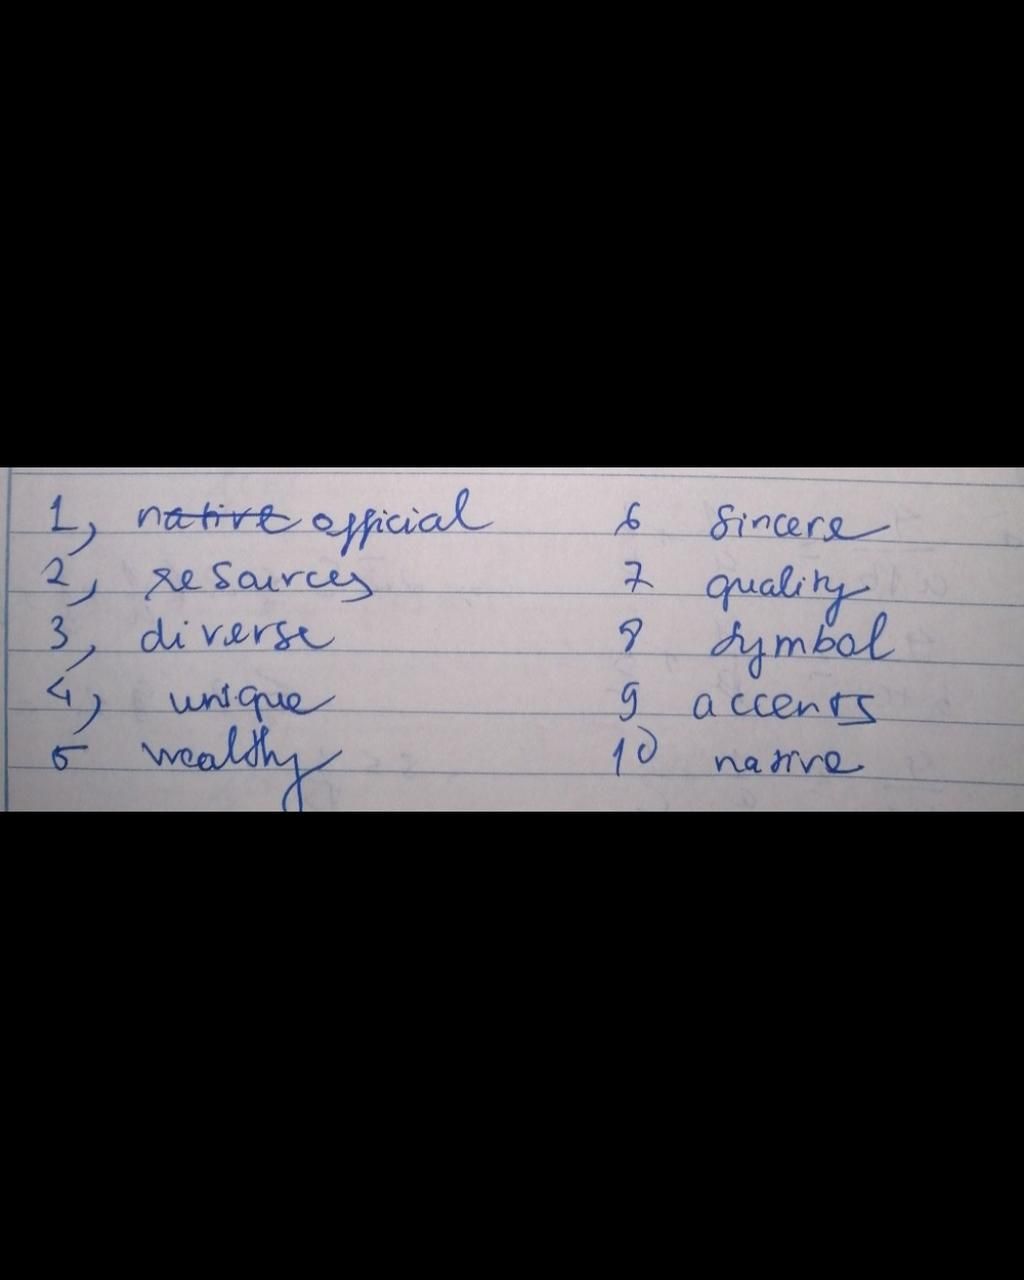 1, native official
2, resources
3, diverse
4, unique
5 wealthy
6 sincere
7 quality
8 symbol
9 accents
10 native